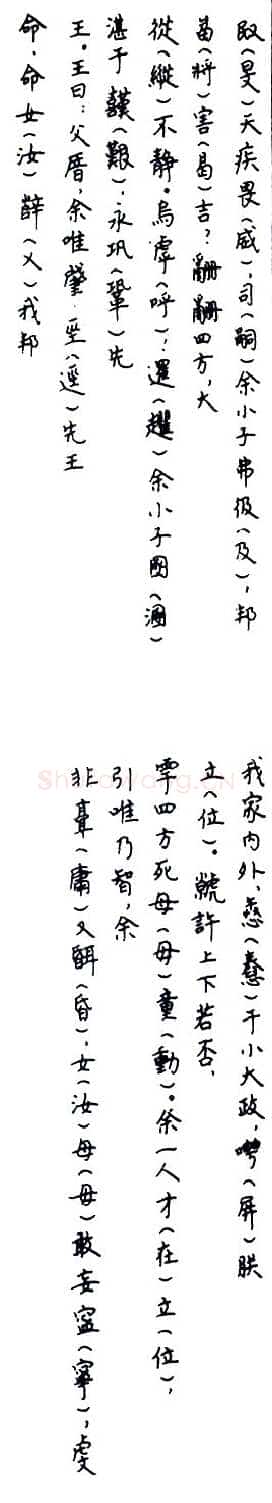 敃（旻）天疾畏（威），司（嗣）余小子弗彶（及），邦
𤔲（將）害（曷）吉？𩁹𩁹四方，大
從（縱）不靜。烏虖（呼）！趯余小子圂（溷）
湛于𦰩（艱），永巩（鞏）先
王。王曰：父㕑，余唯肇巠（逕）先王
命，命女（汝）辥（乂）我邦
我家內外，惷（惷）于小大政，甹（屏）朕
立（位）。虩許上下若否，
雩四方死母（毋）童（動）。余一人才（在）立（位），
引唯乃智，余
非𩫖（庸）又䎽（昏），女（汝）母（毋）敢妄寍（寧），虔